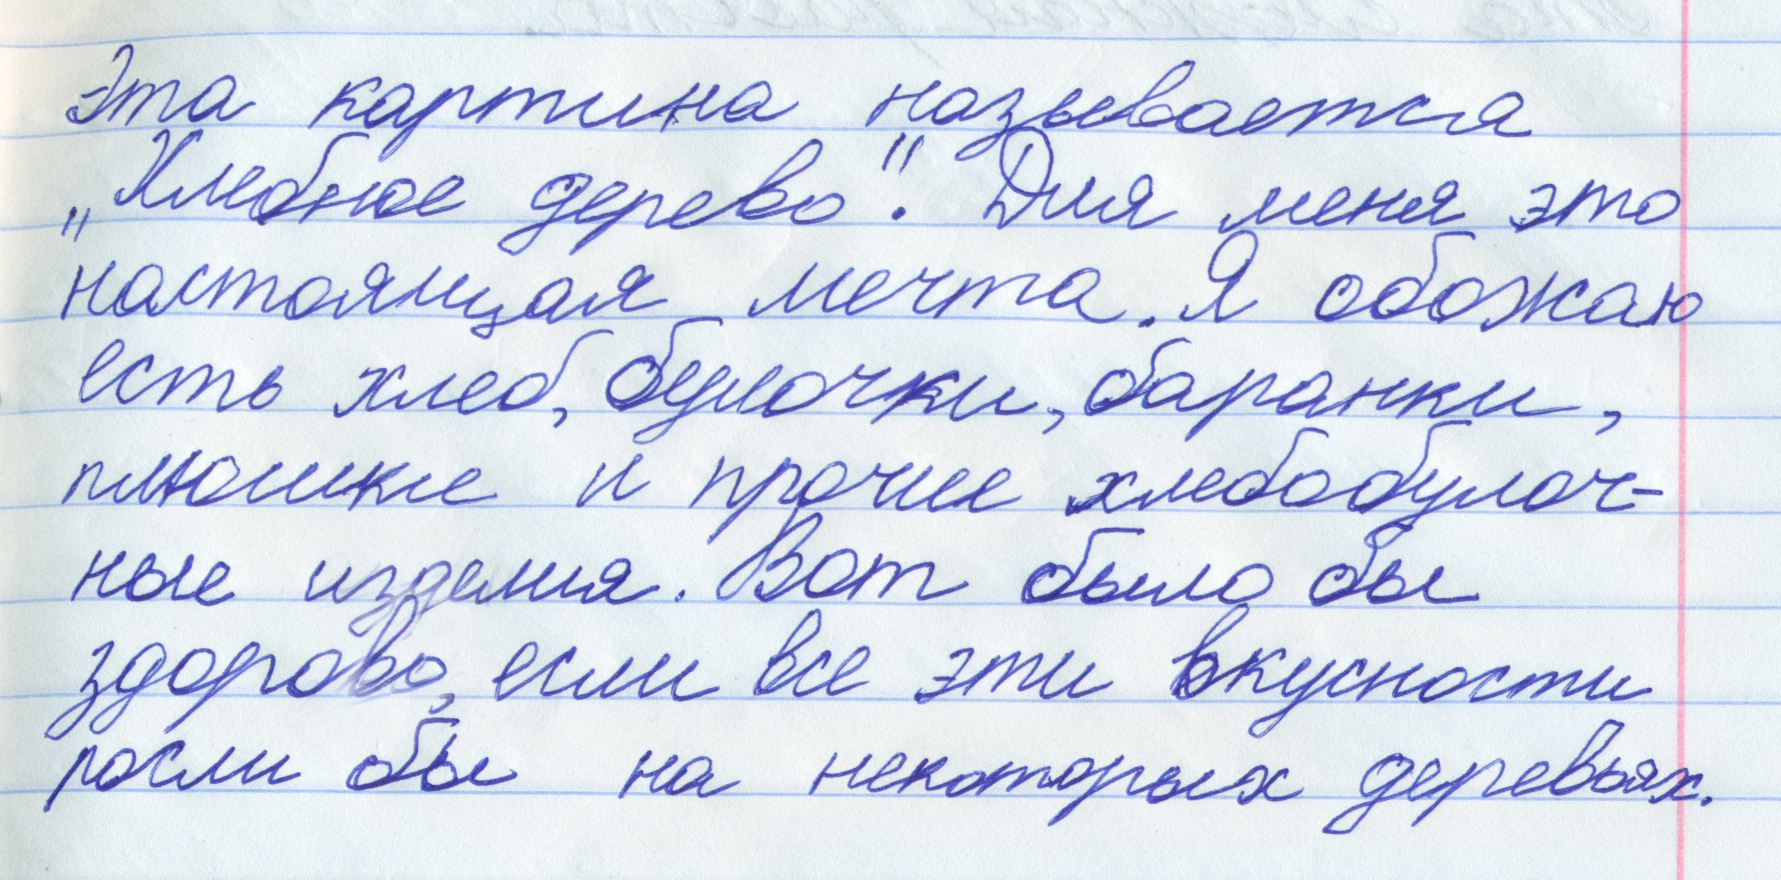 Эта картина называется
„Хлебное дерево". Для меня это
настоящая мечта. Я обожаю
есть хлеб, булочки, баранки,
плюшки и прочие хлебобулоч-
ные изделия. Вот было бы
здорово, если все эти вкусности
росли бы на некоторых деревьях.